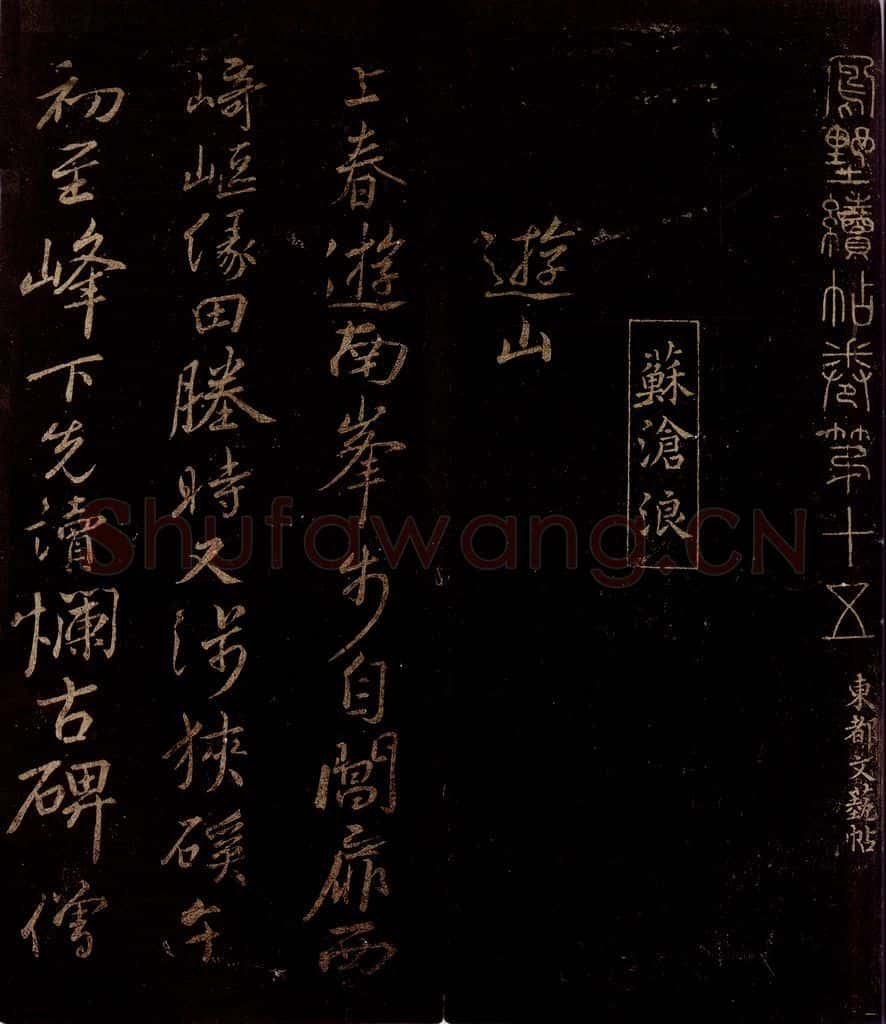 鳳墅續帖卷第十五
東都文藝帖
蘇滄浪
遊山
上春遊南峯步自閶扉西
崎嶇傍田塍時又涉狹磎午
初至峰下先讀爛古碑僧
Shufawang.CN